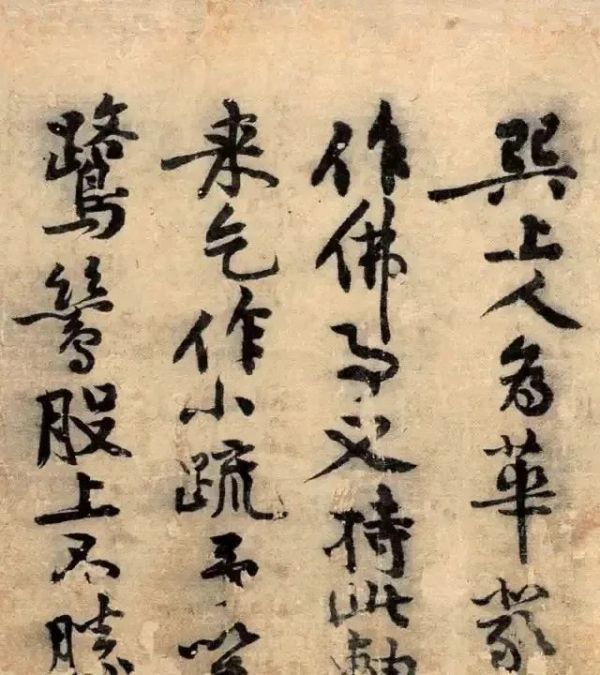 巽上人为華嚴
作佛事又持此軸
来乞作小疏要以
鷺鷥股上不勝